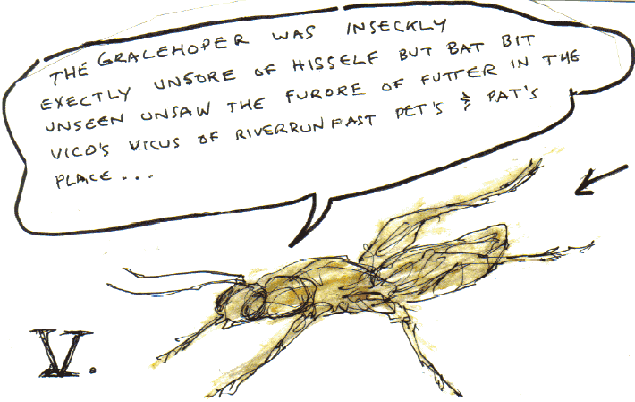 THE GRALEHOPER WAS INSECKLY
EXECTLY UNSORE OF HISSELF BUT BAT BIT
UNSEEN UNSAW THE FURORE OF FUTTER IN THE
VICO'S VICUS OF RIVERRUN PAST PET'S & PAT'S
PLACE...
V.